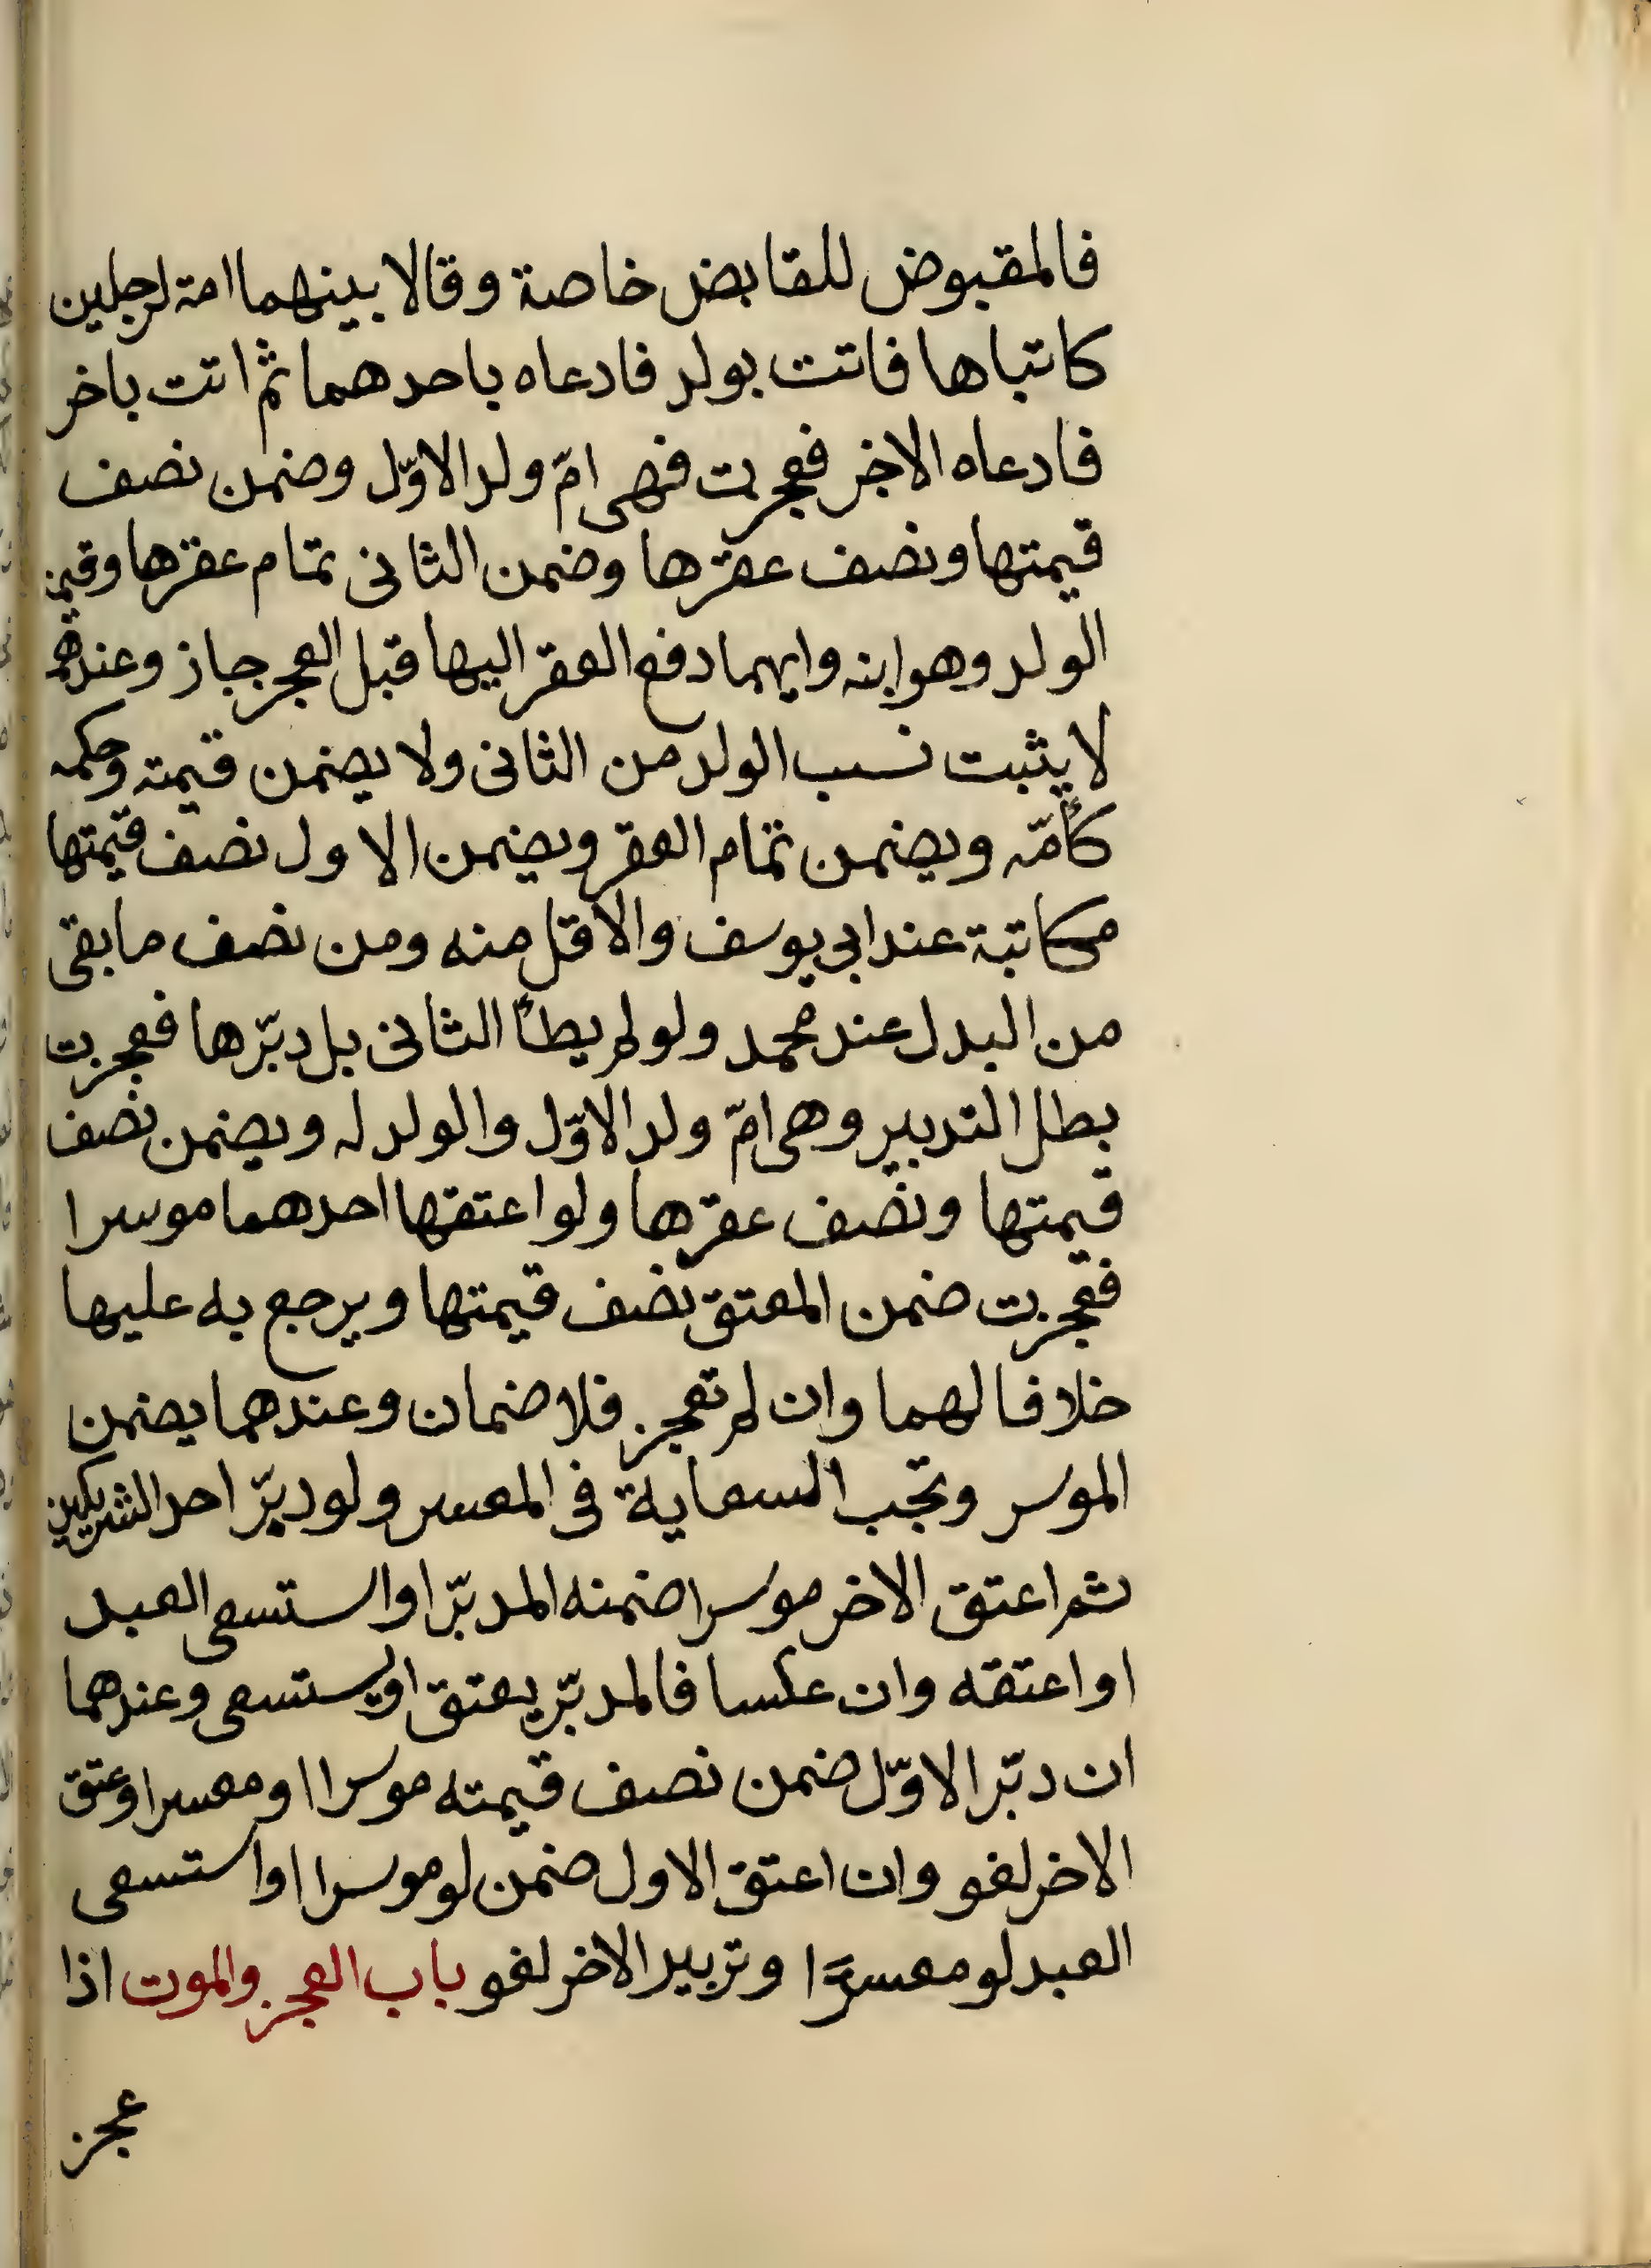 فالمقبوض للقابض خاصة وقالا بينهما امة لرجلين
كاتباها فاتت بولد فادعاه باحدهما ثم اتت باخر
فادعاه الاخر فعجزت فهى امّ ولد الاوّل وضمن نصف
قيمتها ونصف عقرها وضمن الثانى تمام عقرها وقيمة
الولد وهو ابنه وايهما دفع العقر اليها قبل العجز جاز وعندهما
لا يثبت نسب الولد من الثانى ولا يضمن قيمته وحكمه
كأمّه ويضمن تمام العقر ويضمن الاول نصف قيمتها
مكاتبة عند ابى يوسف والاقل منه ومن نصف ما بقى
من البدل عند محمد ولو لم يطأ الثانى بل دبّرها فعجزت
بطل التدبير وهى امّ ولد الاوّل والولد له ويضمن نصف
قيمتها ونصف عقرها ولو اعتقها احدهما موسرا
فعجزت ضمن المعتق نصف قيمتها ويرجع به عليها
خلافا لهما وان لم تعجز فلا ضمان وعندهما يضمن
الموسر وتجب السعاية فى المعسر ولو دبّر احد الشريكين
ثم اعتق الاخر موسرا ضمنه المدبّر او استسعى العبد
او اعتقه وان عكسا فالمدبّر يعتق او يستسعى وعندهما
ان دبّر الاوّل ضمن نصف قيمته موسرا او معسرا وعتق
الاخر لغو وان اعتق الاول ضمن لو موسرا او استسعى
العبد لو معسرًا وتدبير الاخر لغو باب العجز والموت اذا
عجز